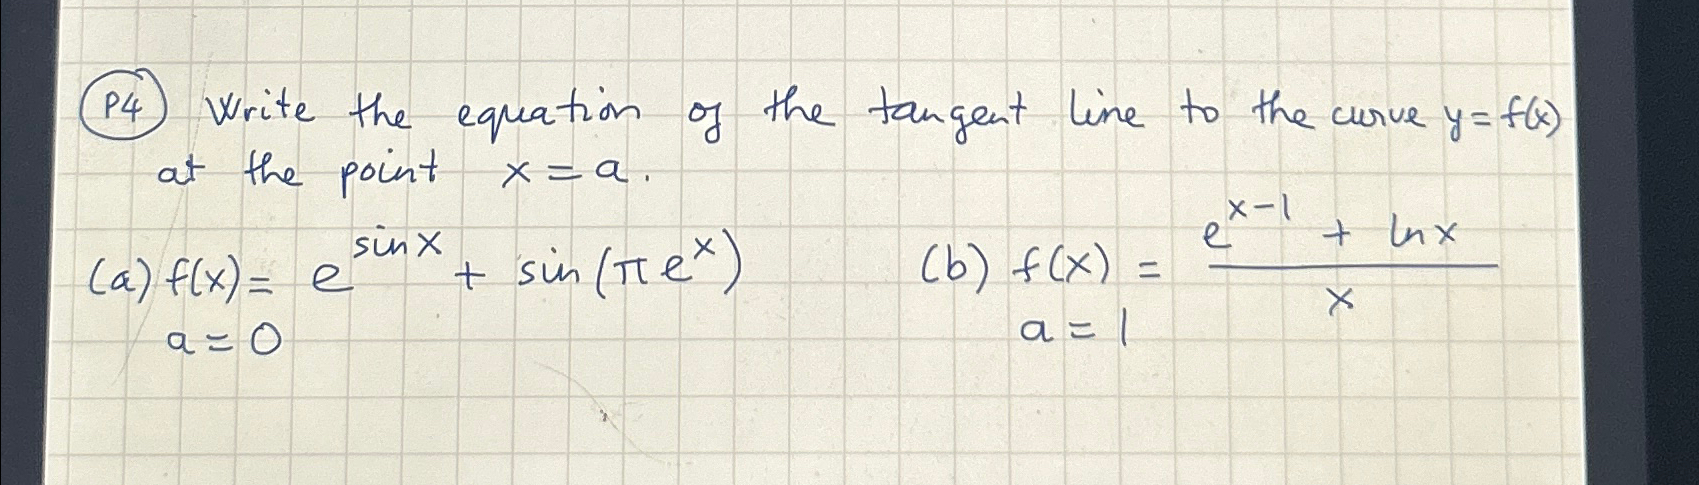 P4 Write the equation of the tangent line to the curve y = f(x)
at the point x = a.
(a) f(x) = e^{sin x} + sin(πe^x)
a = 0
(b) f(x) = \frac{e^{x-1} + ln x}{x}
a = 1